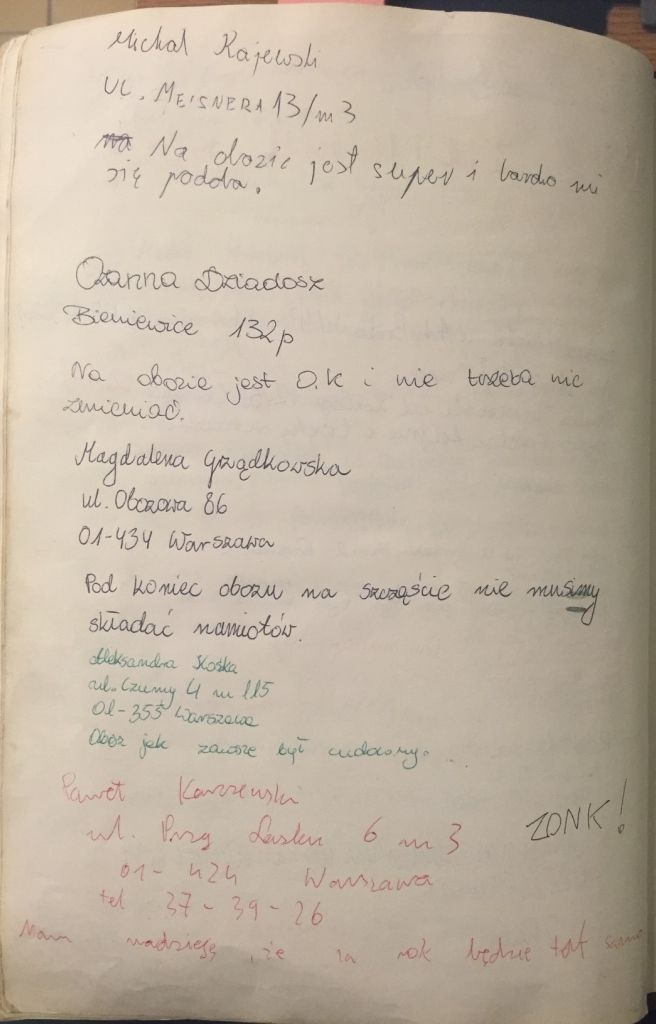 Michał Kajewski
UL. MEISNERA 13/m 3
na Na obozie jest super i bardzo mi
się podoba.
Ożanna Dziadosz
Bieniewice 132p
Na obozie jest O.K i nie trzeba nic
zmieniać.
Magdalena Grządkowska
ul. Obozowa 86
01-434 Warszawa
Pod koniec obozu na szczęście nie musimy
składać namiotów.
Aleksandra Kośka
ul. Czumy 4 m 115
01-355 Warszawa
Obóz jak zawsze był cudowny.
Paweł Karczewski
ul. Przy Lasku 6 m 3
ZONK!
01-424 Warszawa
tel 37-39-26
Mam nadzieję, że za rok będzie tak samo